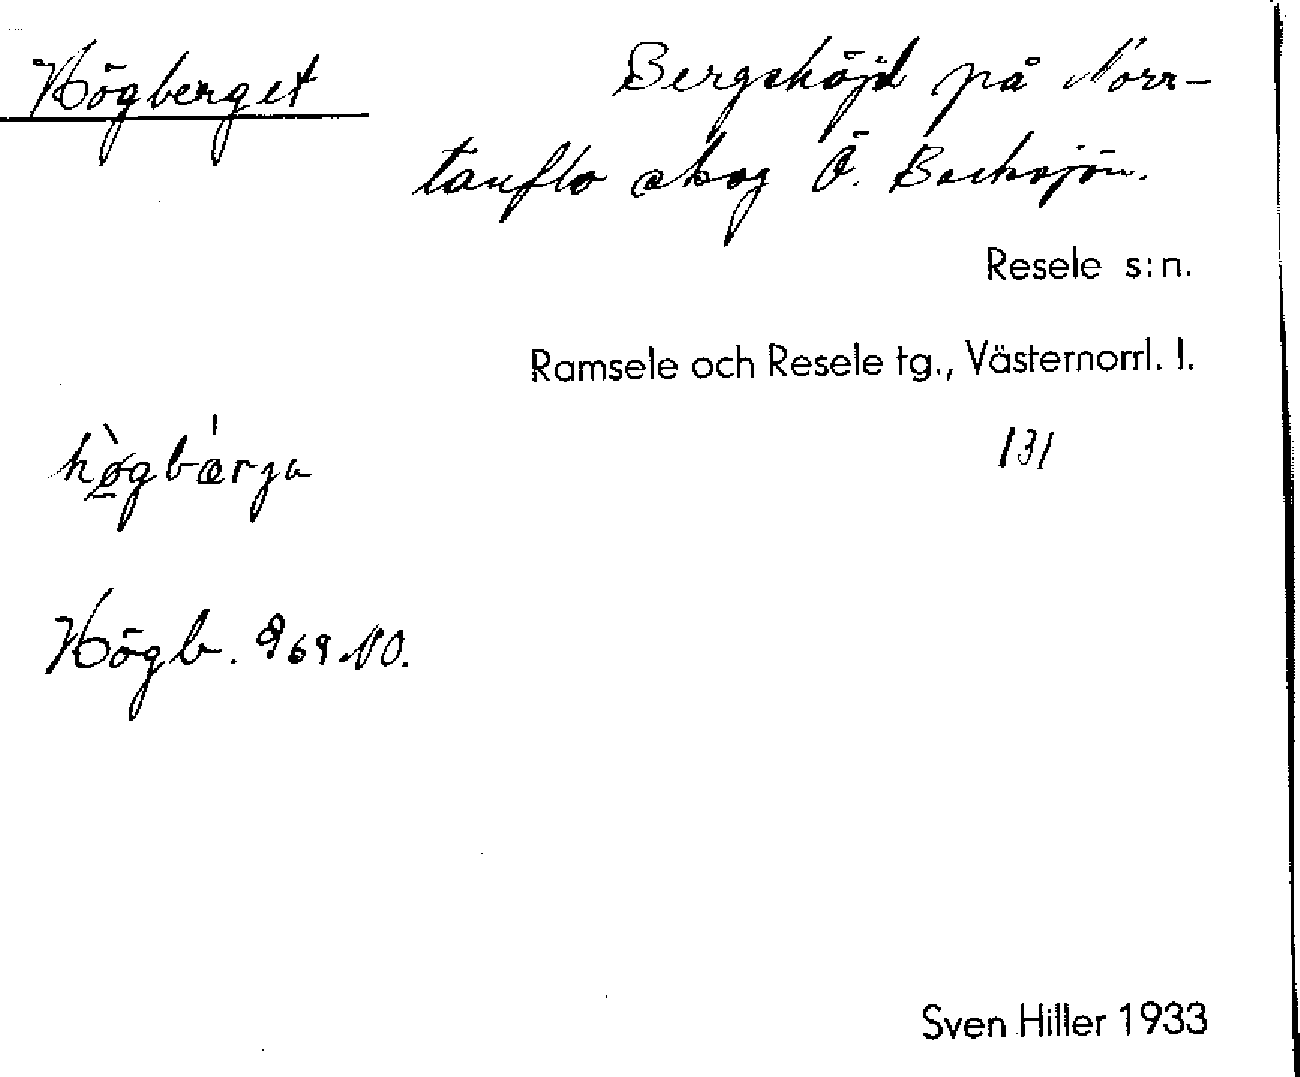 Högberget
Bergshöjd på Norr-
tanflo skog Ö. Backsjön.
Resele s:n.
Ramsele och Resele tg., Västernorrl. l.
131
hø̀gbærga
Högb. 969 NO.
Sven Hiller 1933